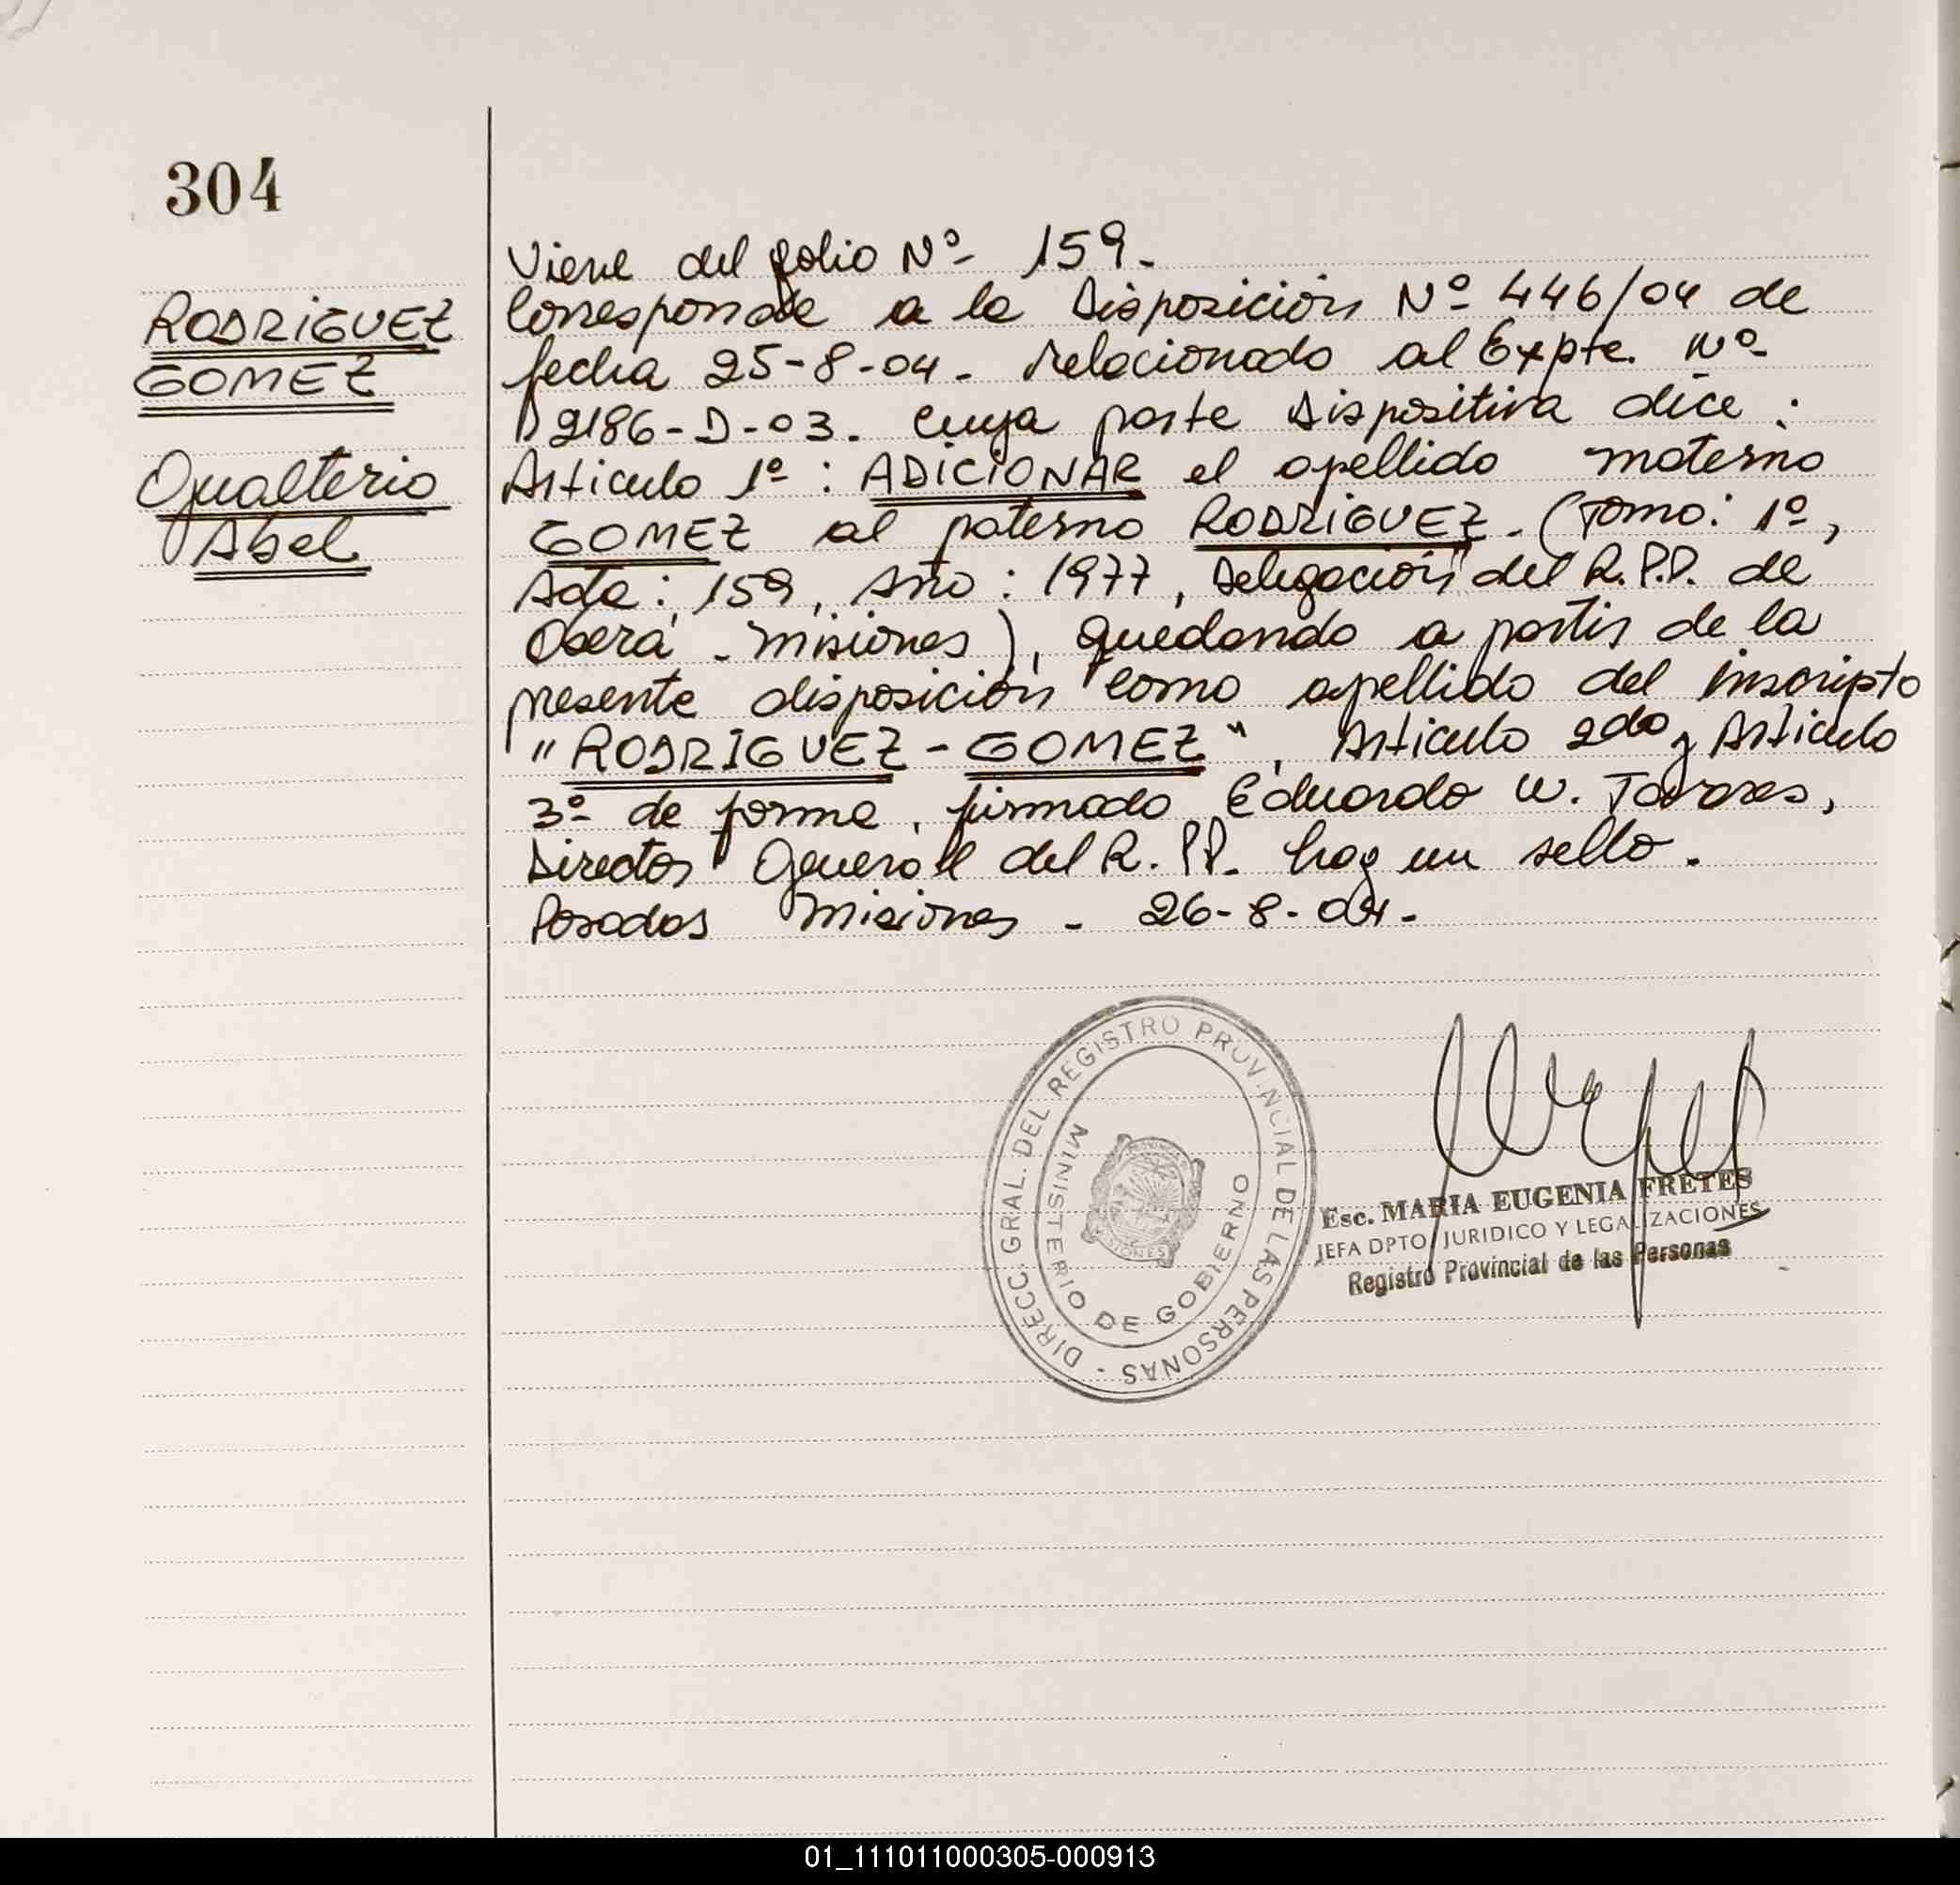 304
RODRIGUEZ
GOMEZ
Gualterio
Abel
Viene del folio Nº 159.-
Corresponde a la Disposición Nº 446/04 de
fecha 25-8-04. Relacionado al Expte. Nº
2186-D-03. Cuya parte Dispositiva dice:
Articulo 1º: ADICIONAR el apellido materno
GOMEZ al paterno RODRIGUEZ. (Tomo: 1º,
Acta: 159, Año: 1977, Delegación del R.P.P. de
Oberá - Misiones), quedando a partir de la
presente disposición como apellido del inscripto
"RODRIGUEZ-GOMEZ", Articulo 2do y Articulo
3º de forma, firmado Eduardo W. Tavares,
Director General del R.PP. hay un sello.
Posadas Misiones - 26-8-04.-
DIRECC. GRAL. DEL REGISTRO PROVINCIAL DE LAS PERSONAS -
MINISTERIO DE GOBIERNO
MISIONES
Esc. MARIA EUGENIA FRETES
JEFA DPTO. JURIDICO Y LEGALIZACIONES
Registro Provincial de las Personas
01_111011000305-000913